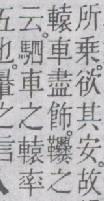 所乘。欲其安。故
轅車盡飾。
云。駟車之轅率
五也。之信